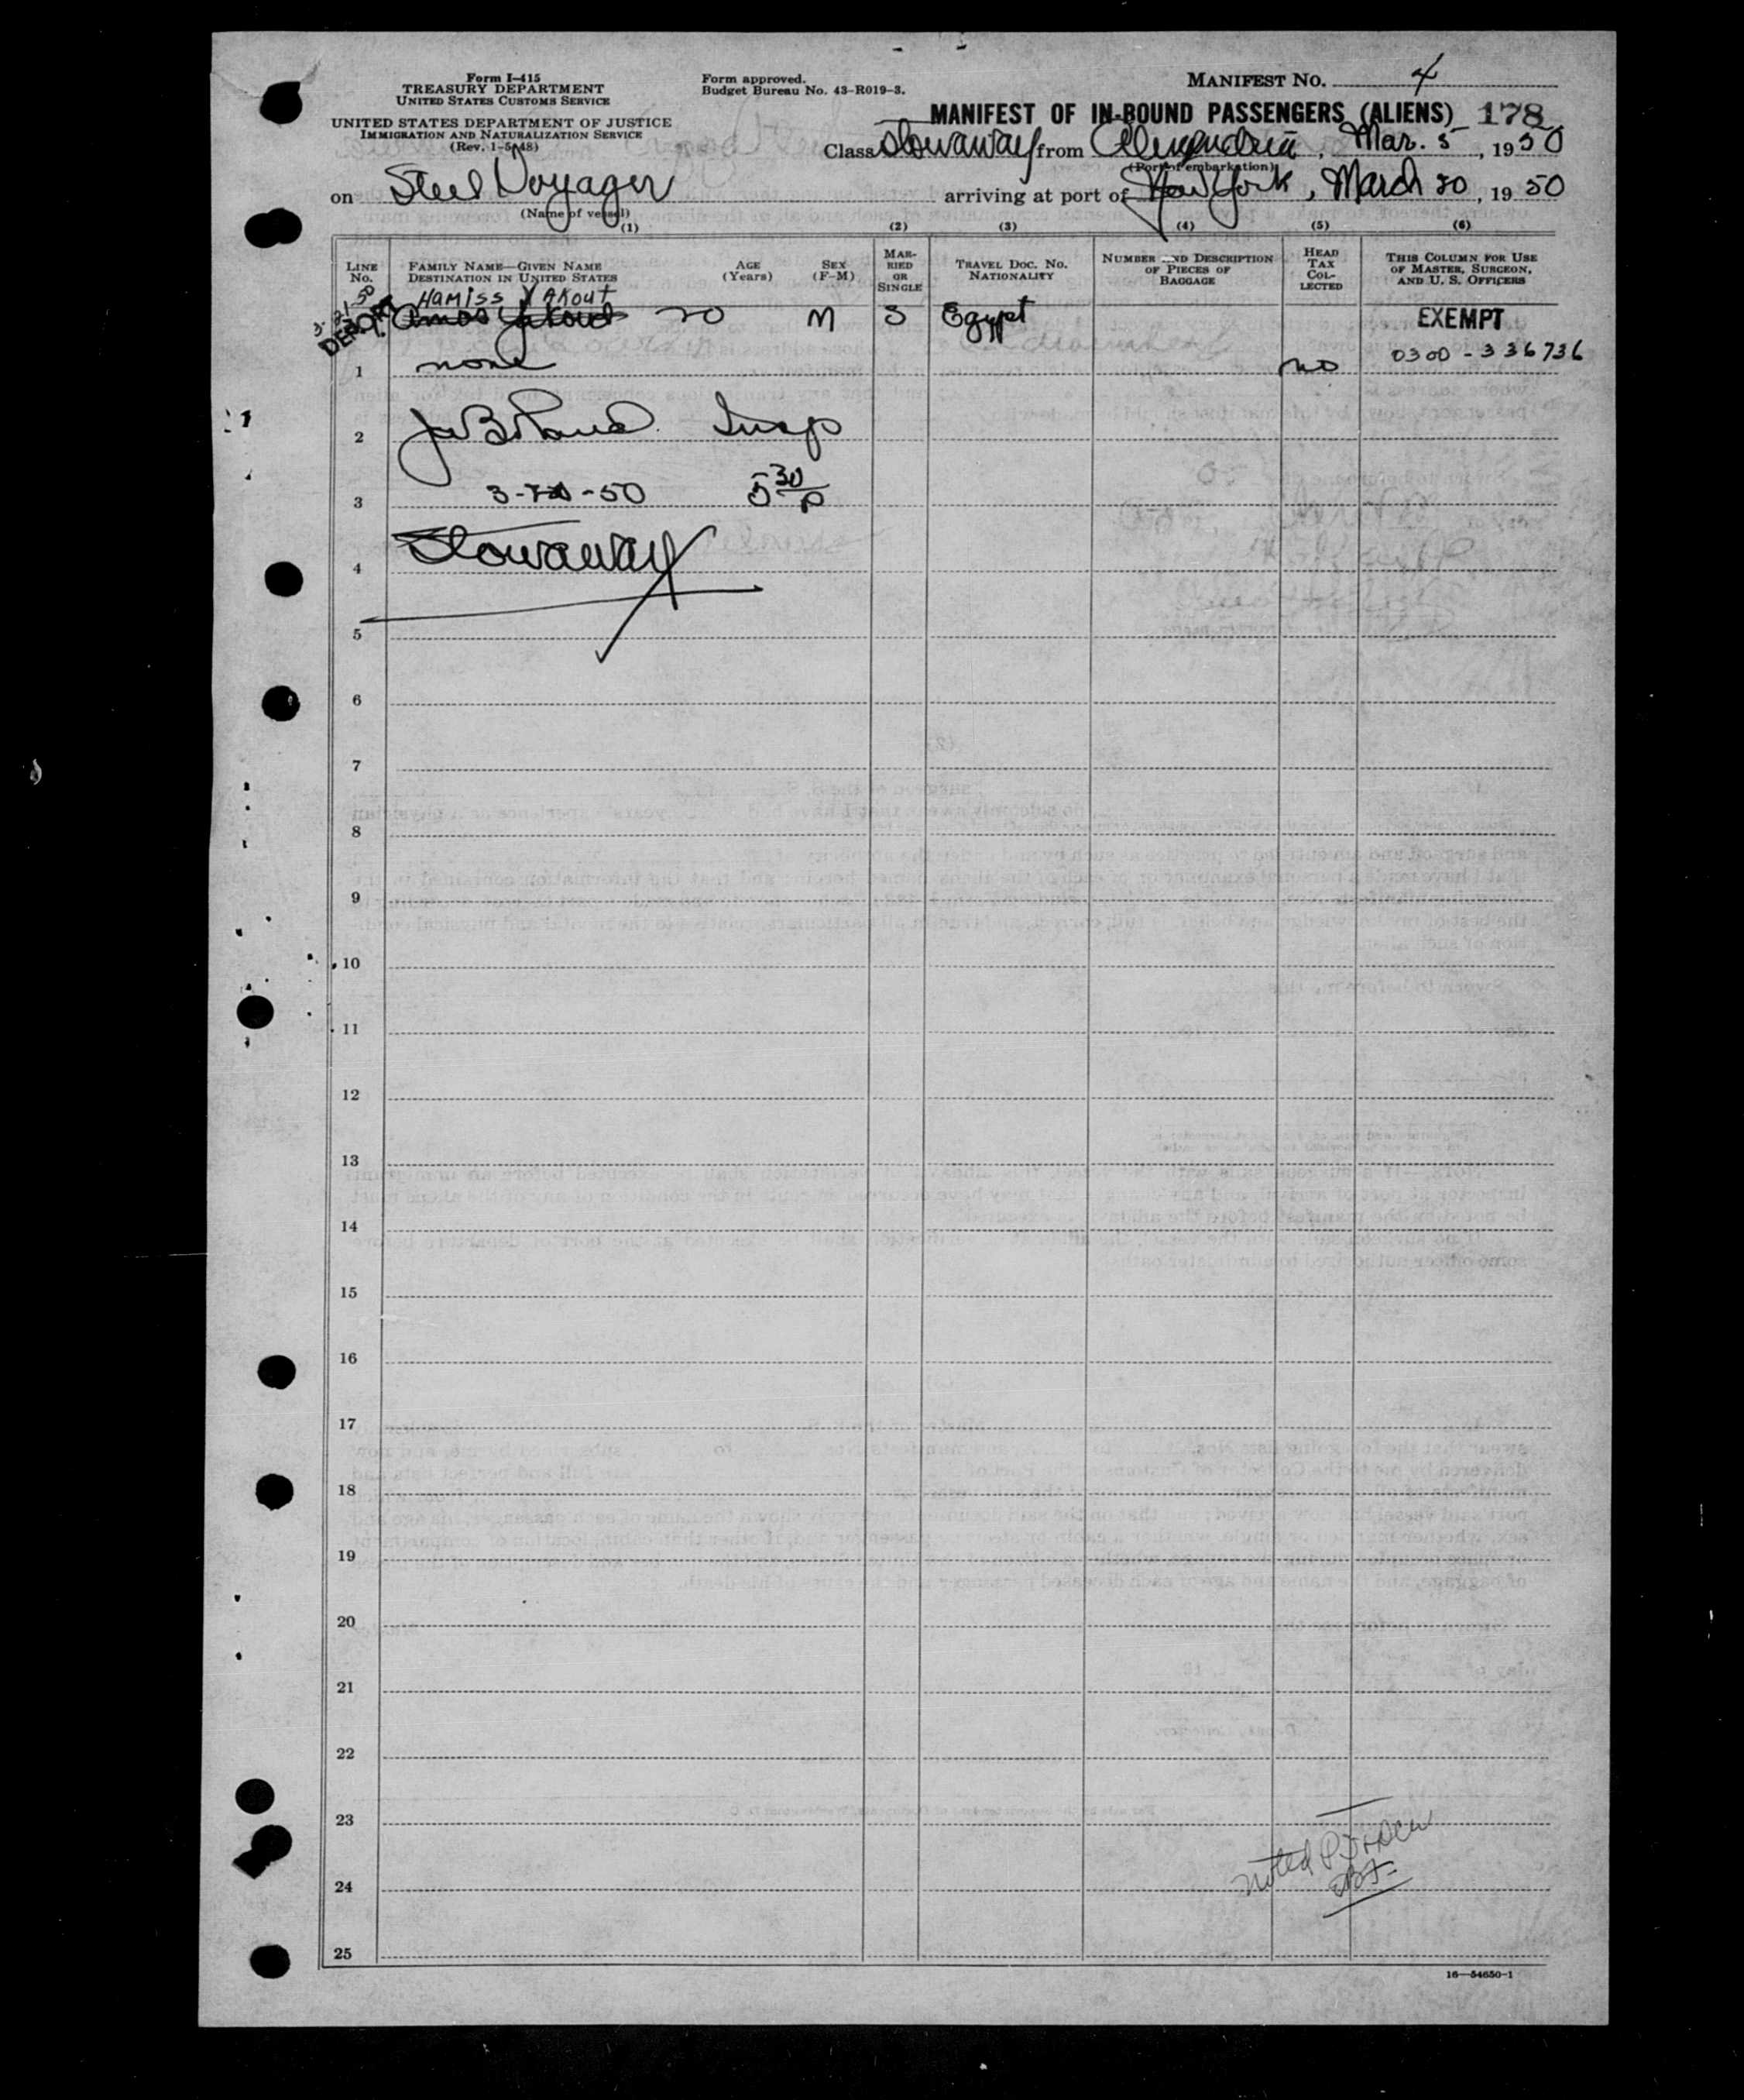 Form I-415
TREASURY DEPARTMENT
UNITED STATES CUSTOMS SERVICE
UNITED STATES DEPARTMENT OF JUSTICE
IMMIGRATION AND NATURALIZATION SERVICE
(Rev. 1-5-48)
Form approved.
Budget Bureau No. 43-R019-3.
MANIFEST NO. 4
MANIFEST OF IN-BOUND PASSENGERS (ALIENS) 178
Class Stowaway from Alexandria, Mar. 5, 1950
(Port of embarkation)
on Steel Voyager arriving at port of New York, March 20, 1950
(Name of vessel)
(1) (2) (3) (4) (5) (6)
LINE NO.
FAMILY NAME—GIVEN NAME
DESTINATION IN UNITED STATES
AGE (Years)
SEX (F-M)
MARRIED OR SINGLE
TRAVEL DOC. NO.
NATIONALITY
NUMBER AND DESCRIPTION OF PIECES OF BAGGAGE
HEAD TAX COLLECTED
THIS COLUMN FOR USE OF MASTER, SURGEON, AND U. S. OFFICERS
3-21-50
Hamiss Yakout
Amos Yakout 20 M S Egypt EXEMPT
0300-336736
1 none no
2 Insp
3 -50 5 30/p
4 Stowaway
5
6
7
8
9
10
11
12
13
14
15
16
17
18
19
20
21
22
23
noted
24
25
16—54650-1